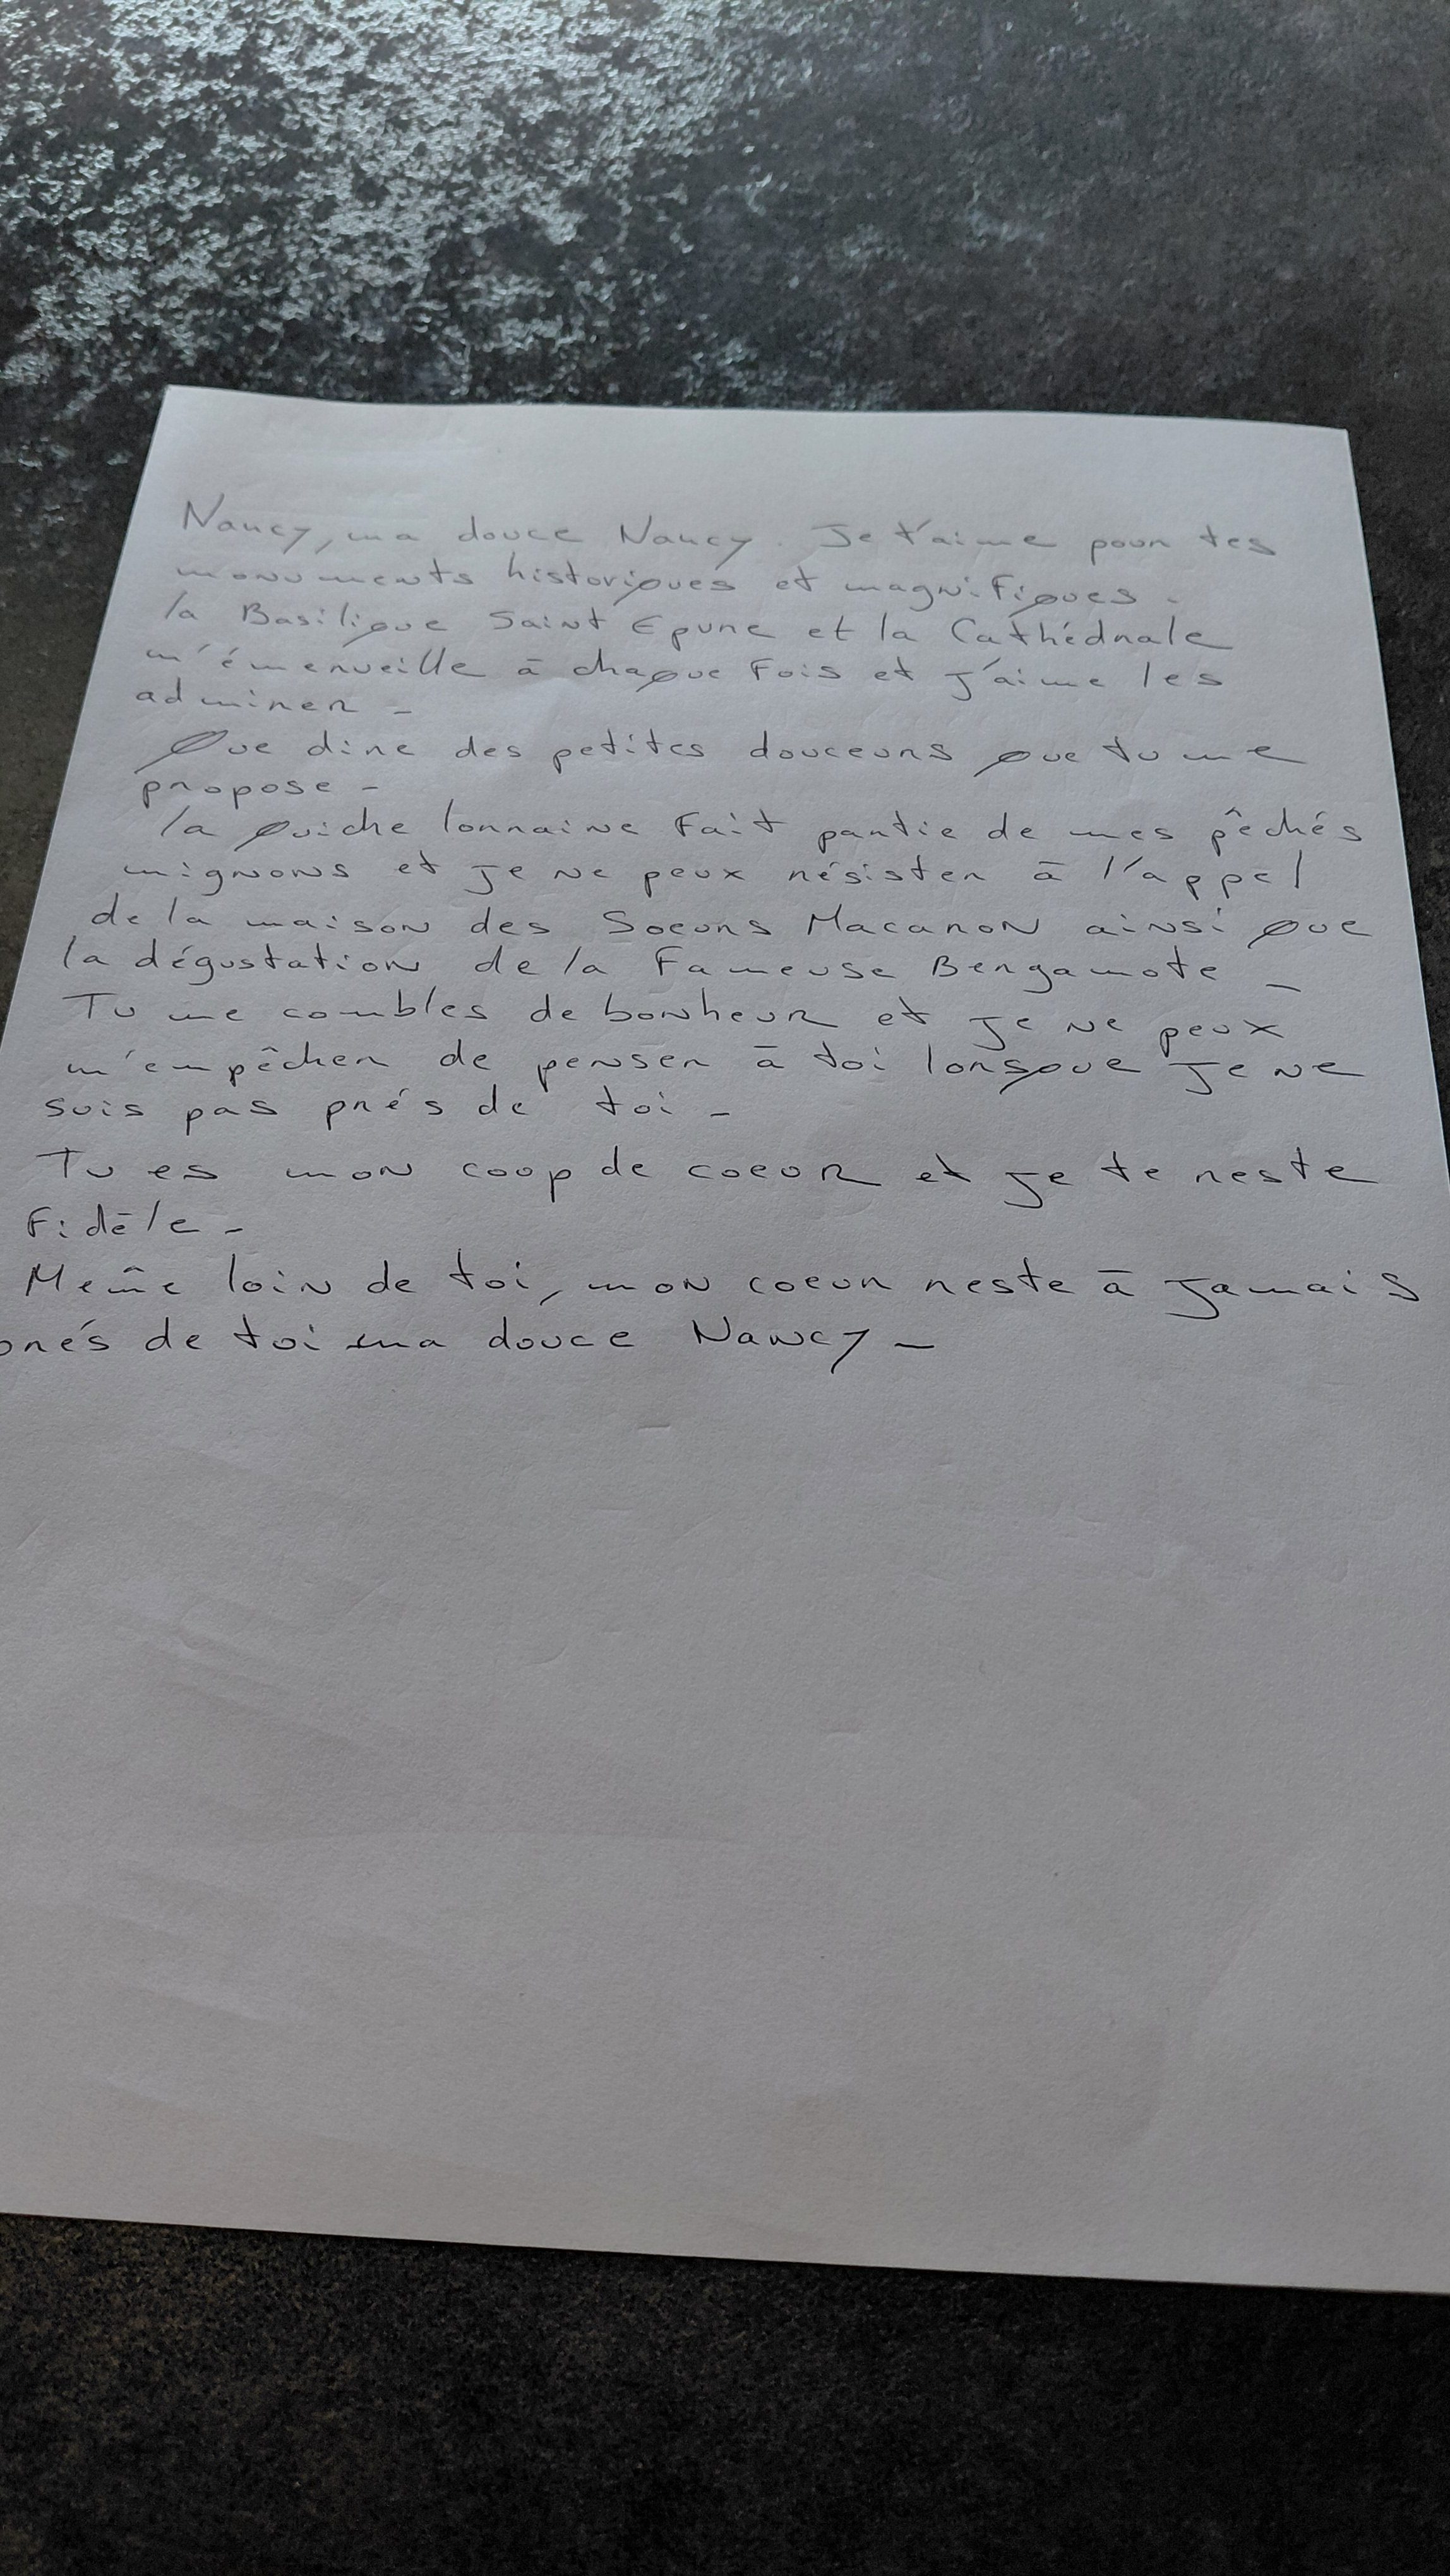 Nancy, ma douce Nancy. Je t'aime pour tes
monuments historiques et magnifiques.
la Basilique Saint Epvre et la Cathédrale
m'émerveille à chaque fois et j'aime les
admirer -
Que dire des petites douceurs que tu me
propose -
la quiche lorraine fait partie de mes pêchés
mignons et je ne peux résister à l'appel
de la maison des Soeurs Macaron ainsi que
la dégustation de la Fameuse Bergamote -
Tu me combles de bonheur et je ne peux
m'empêcher de penser à toi lorsque je ne
suis pas prés de toi -
Tu es mon coup de coeur et je te reste
Fidèle -
Même loin de toi, mon coeur reste à jamais
prés de toi ma douce Nancy -